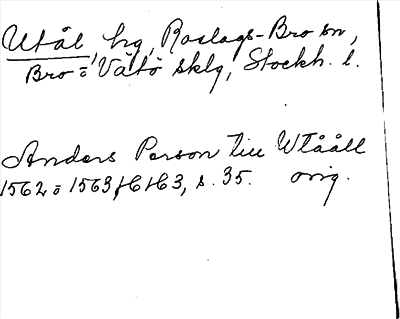 Utål, hg, Roslags-Bro sn,
Bro o Vätö sklg, Stockh. l.
Anders Person till Wtååll
1562 o 1563 s. 35. orig.